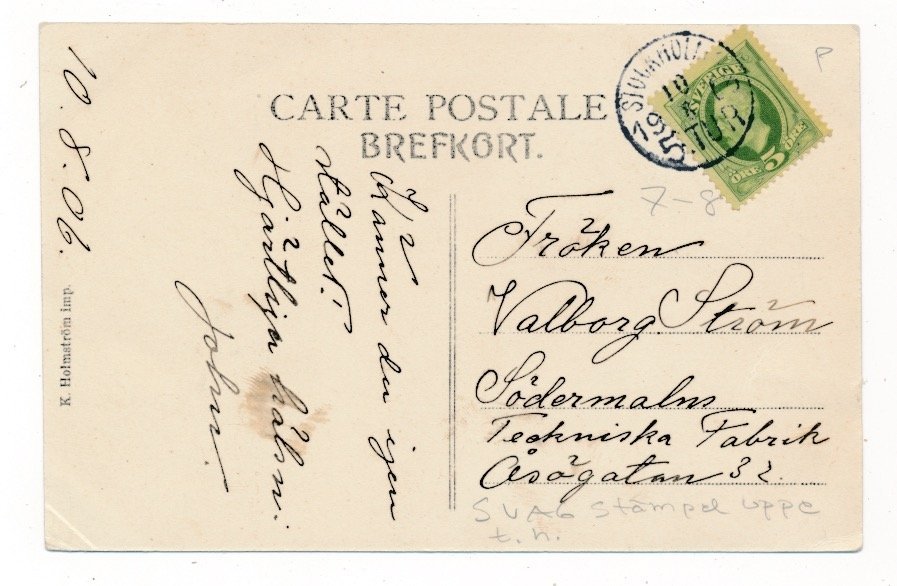 10. 8. 06.
K. Holmström imp.
CARTE POSTALE
BREFKORT.
Känner du igen
stället?
Hjärtliga hälsn.
John.
STOCKHOLM
10
8
1906
5. TUR
SVERIGE
5
ÖRE 5 ÖRE
P
7-8
Fröken
Valborg Ström
Södermalms
Teckniska Fabrik
Åsögatan 32.
SVAG stämpel uppe
t.h.